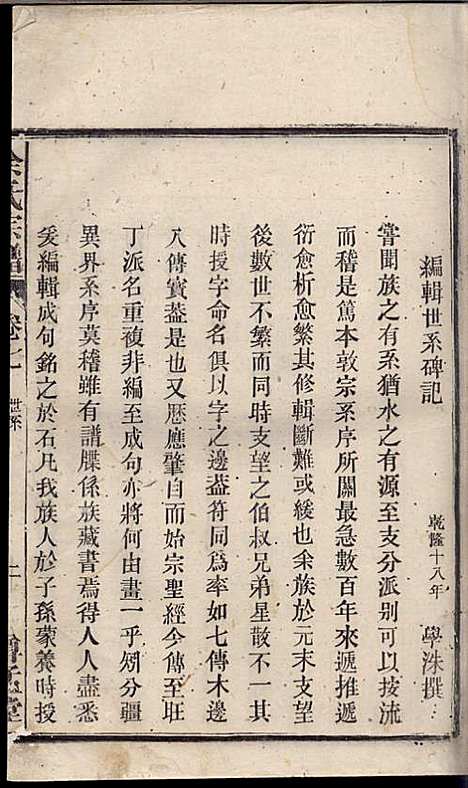 編輯世系碑記 乾隆十八年 學洙撰
嘗聞族之有系猶水之有源至支分派别可以按流
而稽是篤本敦宗系序所關最急數百年來遞推遞
衍愈析愈繁其修輯斷難或緩也余族於元末支望
後數世不繁而同時支望之伯叔兄弟星散不一其
時授字命名俱以字之邊葢符同爲率如七傳木邊
八傳寳葢是也又歴應肇自而始宗聖經今傳至旺
丁派名重複非編至成句亦將何由畫一乎矧分疆
異界系序莫稽雖有譜牒係族藏書焉得人人盡悉
爰編輯成句銘之於石凡我族人於子孫蒙養時授
余氏宗譜 卷之 世系 二